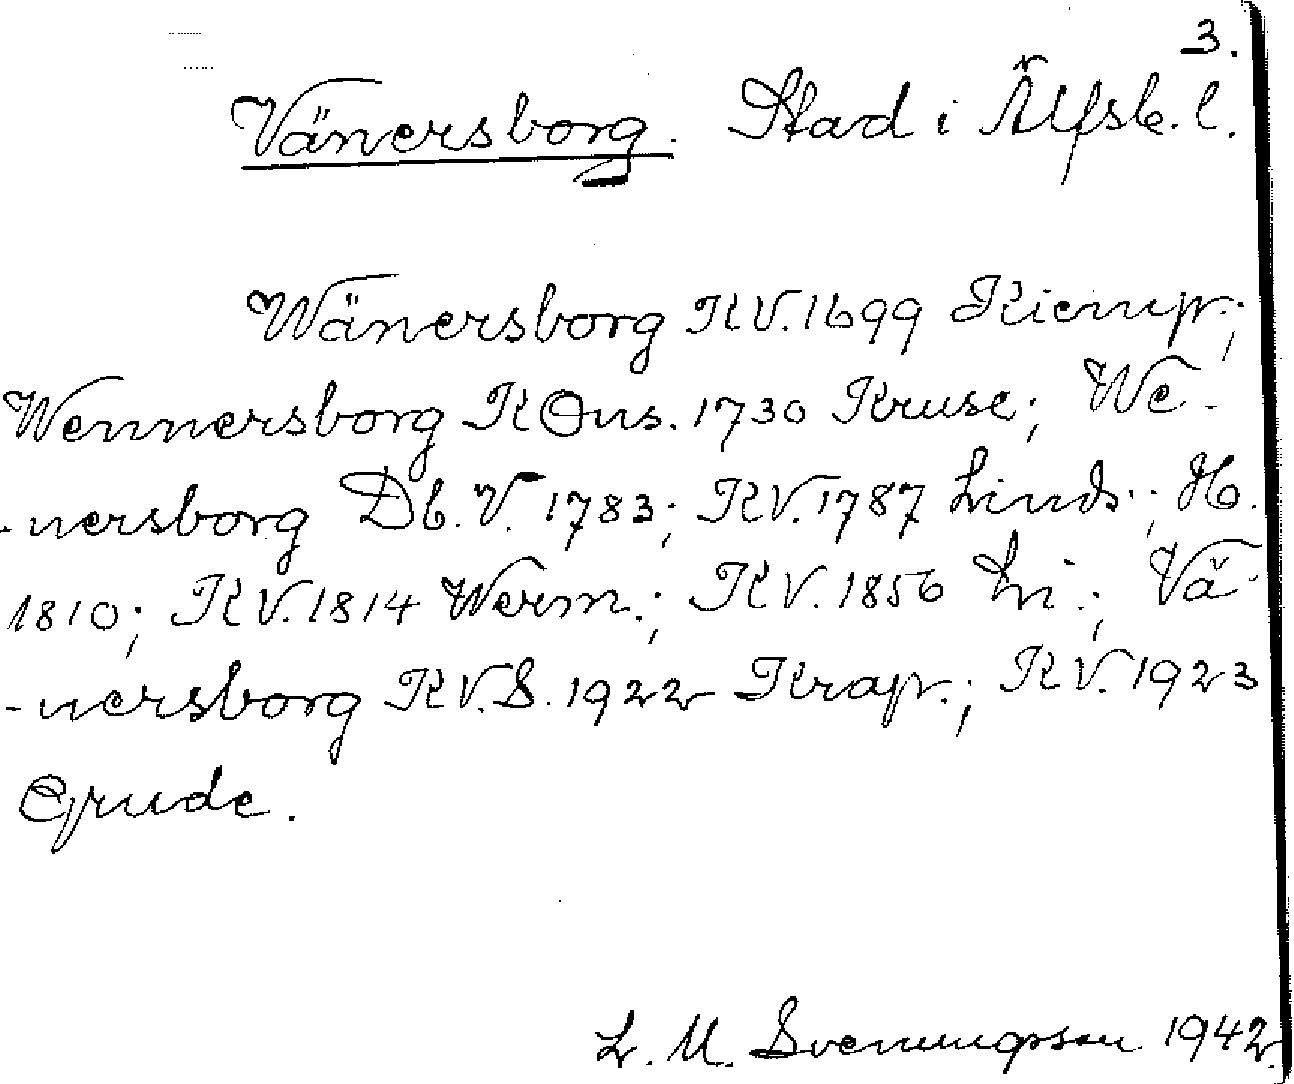 3.
Vänersborg. Stad i Älfsb. l.
Wänersborg KV. 1699 Kiemp.;
Wennersborg K Ons. 1730 Kruse; We-
-nersborg Db. V. 1783; KV. 1787 Linds.; H.
1810; KV. 1814 Werm.; KV. 1856 Li.; Vä-
-nersborg KV. S. 1922 Krap.; KV. 1923
Grude.
L. M. Svenungsson 1942.